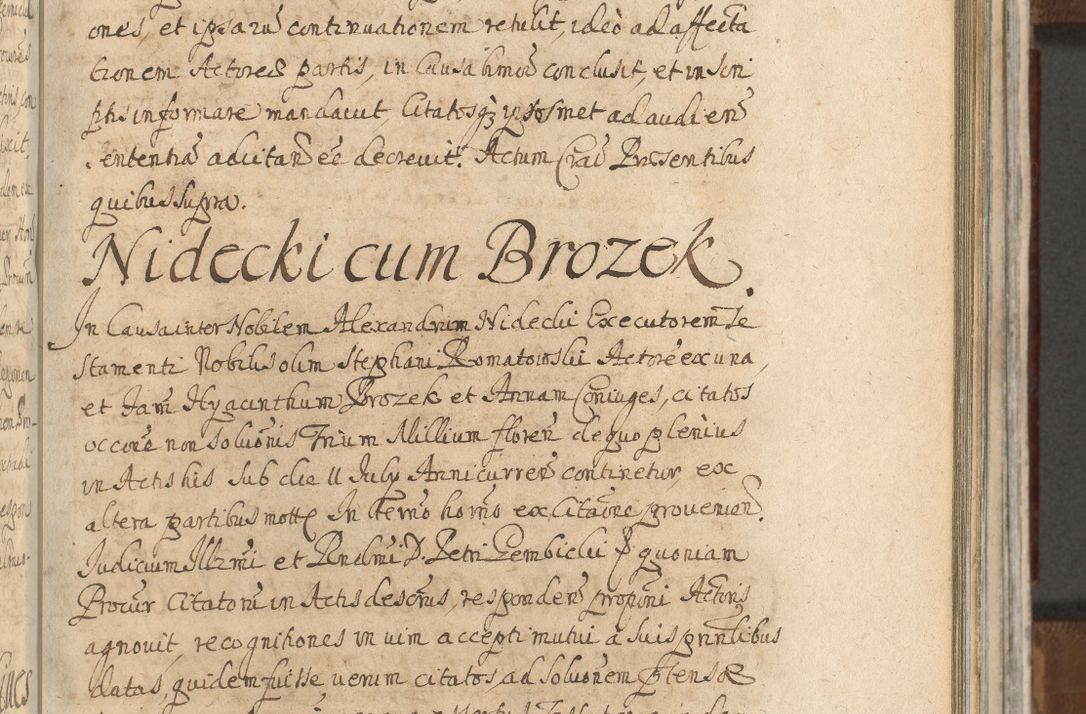 ones, et ipsarū continuationem retulit, ideò ad affecta
tionem Actoreæ partis, in Causa hmōi conclusit, et in scri
ptis informare mandavit, Citatosqȝ ipsosmet ad audien̄
sententiā adcitan̄ eē decrevit. Actum Crac̄ Præsentibus
quibus supra.
Nidecki cum Brozek.
In Causa inter Nobilem Alexandrum Nidecki Executorem Te
stamenti Nobilis olim Stephani Romatowski Actorē ex una,
et Fam̄ Hyacinthum Brozek et Annam Coniuges, citatos
occōne non solūonis Trium Millium floren̄ de quo plenius
in Actis his sub die 11 July Anni curren̄ continetur, ex
altera partibus mott In termō horno ex Citāone provenien̄.
Judicium Illr̄mi et Rndmi D. Petri Gembicki P quoniam
Procur̄ Citatorū in Actis descrūs, responden̄ propōni Actoris
agnovit, recognitiones in vim accepti mutui à suis prinlibus
datas, quidem fuisse verum citatos, ad solūonem ptensæ